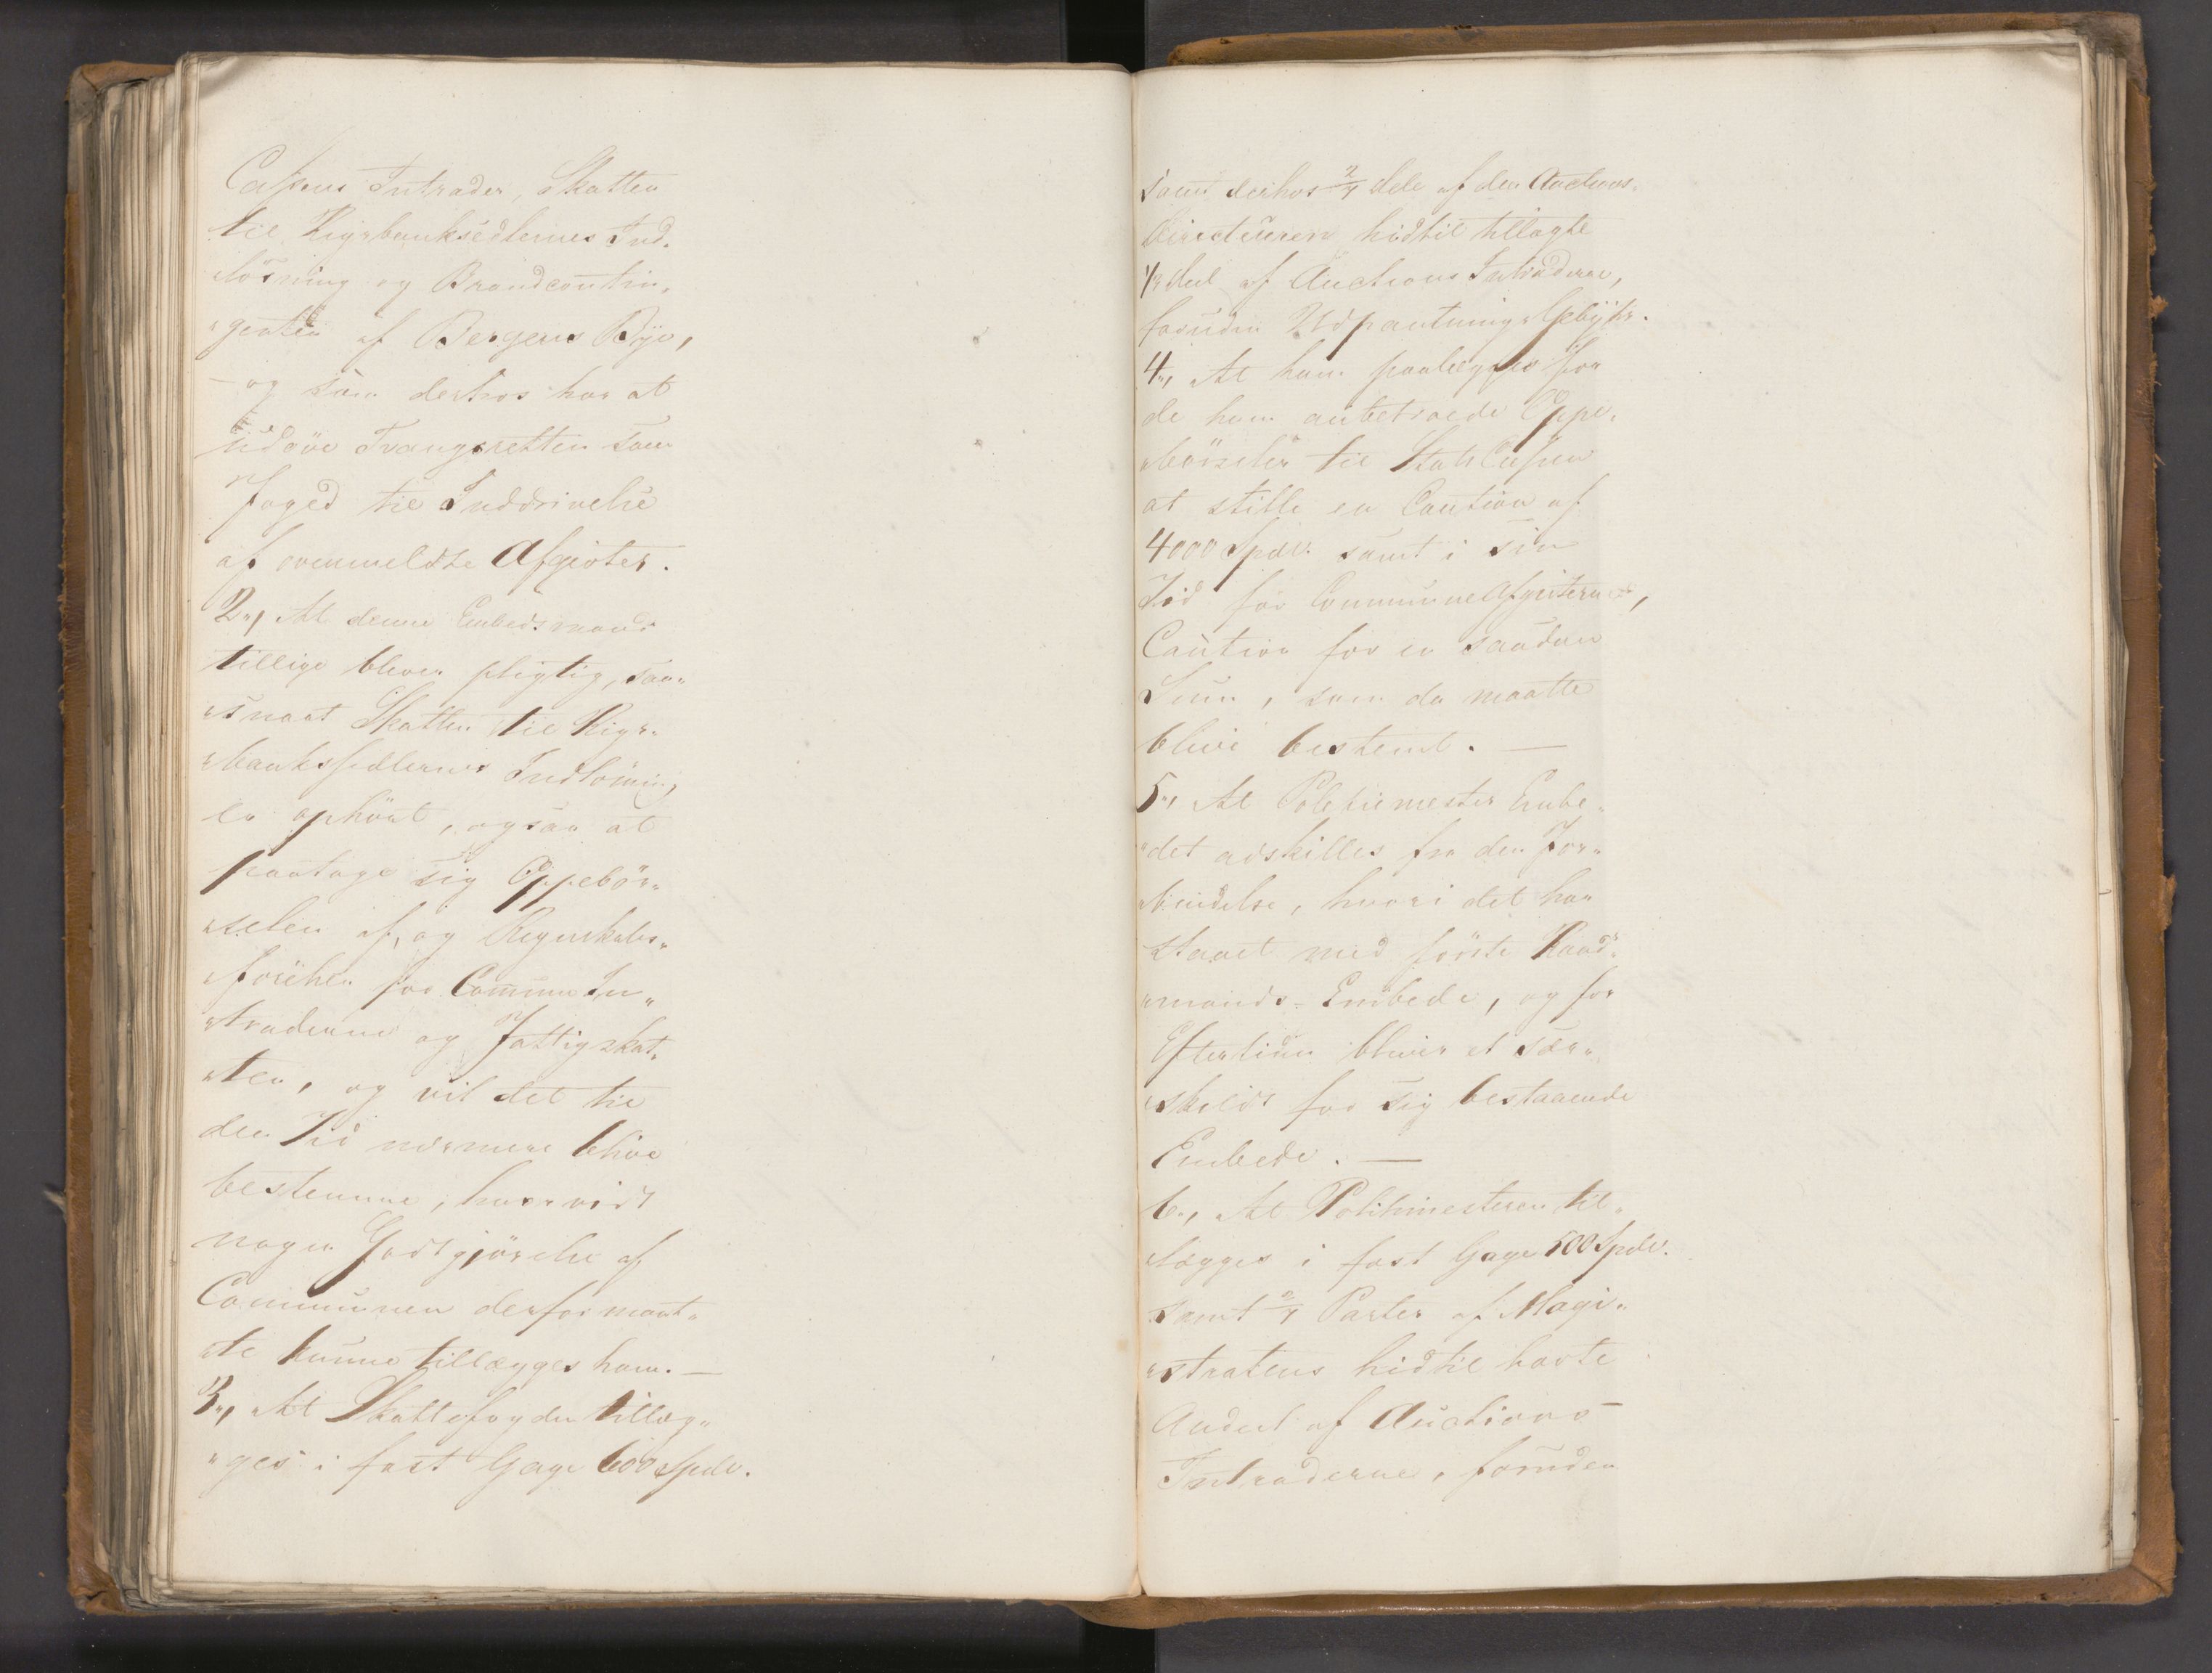 Cassens Intrader, Skatten
til Rigsbanksedlernes Ind-
lösning og Brandcontin-
"genten af Bergens Bye,
- og som derhos har at
udöve Tvangsretten som
Foged til Inddrivelse
af ovenmeldte Afgivter.
2", At denne Embedsmand
tillige bliver pligtig, saa"
"snart Skatten til Rigs"
"banksedlernes Indlösning
er ophört, ogsaa at
paatage sig Oppebör"
"selen af, og Regnskabs"
"förselen for Commune In"
"traderne og Fattigskat"
"ten, og vil det til
den Tid nærmere blive
bestemme, hvorvidt
nogen Godtgjörelse af
Communen derfor maat"
"te kunne tillægges ham. —
3", At Skattefogden tillæg"
"ges i fast Gage 600 Spdlr.
samt derhos 2/4 dele af den Auctions-
Directeuren hidtil tillagte
1/2 deel af Auctions Intraderne,
foruden Udpantnings Gebyhr.
4", At ham paalægges for
de ham anbetroede Oppe-
"börseler til Stats Cassen
at stille en Caution af
4000 Spdlr. samt i sin
Tid for Communeafgivterne,
Caution for en saadan
Sum, som da maatte
blive bestemt. —
5", At Politiemester Embe"
"det adskilles fra den For"
"bindelse, hvori det har
staaet med förste Raad"
"mands-Embede, og for
Eftertiden bliver et sær"
"skildt for sig bestaaende
Embede. —
6", At Politimesteren til"
"lægges i fast Gage 500 Spdlr.
samt 2/4 Parter af Magi"
"stratens hidtil havte
Andeel af Auctions
Intraderne, foruden